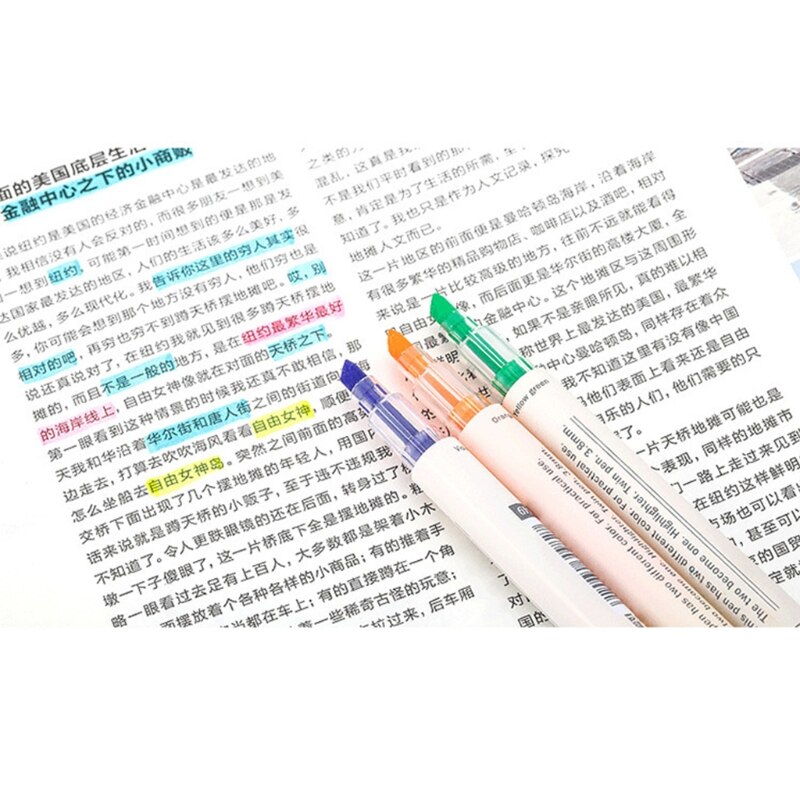 面的美国底层生活
金融中心之下的小商贩
说纽约是美国的经济金融中心是最发达的地
我相信没有人会反对的，而很多朋友一想到美
一想到纽约，可能第一时间想到的便是那是发
达国家最发达的地区，人们的生活该多么美好，多
么优越，多么现代化。我告诉你这里的穷人其实很
多，你可能会想到那个地方没有穷人，他们穷也是
相对的吧，再穷也穷不到蹲天桥摆地摊吧。哎，别
说还真说对了，在纽约我就见到很多蹲天桥摆地
摊的，而且不是一般的地方，是在纽约最繁华最好
的海岸线上，自由女神像就在对面的天桥之下。
第一眼看到这种情景的时候我还真不敢相信，那
天我和华沿着华尔街和唐人街之间的街道向
边走去，打算去吹吹海风看看自由女神，顺便
怎么坐船去自由女神岛。突然之间前面的高
交桥下面出现了几个摆地摊的年轻人，用国
话来说就是蹲天桥的小贩子，至于违不违规我
不知道了。令人更跌眼镜的还在后面，转身过了
墩一下子傻眼了，这一片桥底下全是摆地摊的。
略一眼看过去足有上百人，大多数都是架着小木
面摆放着个各种各样的小商品；有的推着手
当都在车上；有的直接蹲在一个角
着一些稀奇古怪的玩意；
拉过来，后车厢
之类的方
混乱，这真是我
不是我们平时看到的那
意，肯定是为了生活的所需，至
知道了。我也只是作为人文记录，探究
地摊人文而已。
这一片地区的前面便是曼哈顿岛海岸，沿着海岸
有很多繁华的精品购物店、咖啡店以及酒吧，相对
来说是一片比较高级的地方，往前不远就能看得
而后面更是华尔街的高楼大厦，全
金融中心。这个地摊区与这周围形
如果不是亲眼所见，真的难以相
称世界上最发达的美国，最繁华
中心曼哈顿岛，同样存在着众
我不知道这里有没有像中国
他们表面上看来还是自由
乐的人们，他们需要的只
一片天桥地摊可能也是
表现，同样的地摊市
们一路上走过来见到
在纽约这样鲜明
市场也可以看
甚至可以
的国贸
Yellow green
This pen has two different color. For practical use.
The two become one. Highlighter. Twin pen 3.8mm.
pen has two different color. For practical use.
two become one. Highlighter. Twin pen 3.8mm.